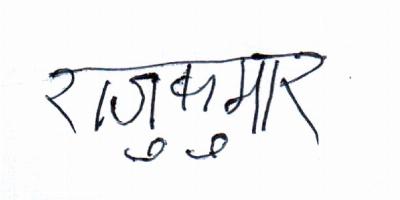 राजुकुमार